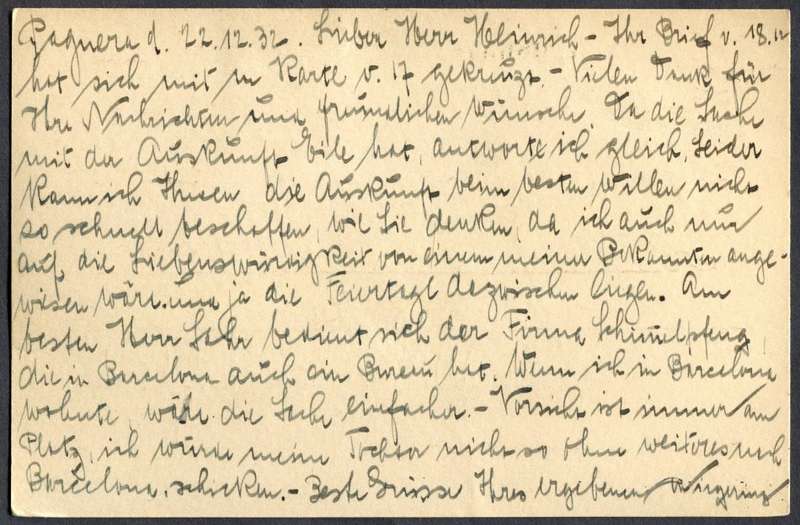 Paguera d. 22.12.32. Lieber Herr Heinrich - Ihr Brief v. 18.12
hat sich mit m Karte v. 17 gekreuzt. - Vielen Dank für
Ihre Nachrichten und freundlichen Wünsche. Da die Sache
mit der Auskunft Eile hat, antworte ich gleich. Leider
kann ich Ihnen die Auskunft beim besten Willen nicht
so schnell beschaffen, wie Sie denken, da ich auch nur
auf die Liebenswürdigkeit von einem meiner Bekannten ange-
wiesen wäre und ja die Feiertage dazwischen liegen. Am
besten Herr bedient sich der Firma Schimmelpfeng,
die in Barcelona auch ein Bureau hat. Wenn ich in Barcelona
wohnte, wäre die Sache einfacher. - Vorsicht ist immer am
Platz, ich würde meine Tochter nicht so ohne weiteres nach
Barcelona schicken. - Beste Grüsse Ihres ergebenen